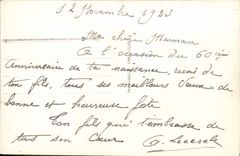 12 Novembre 1923
Ma chère Maman
A l'occasion du 60ième
Anniversaire de ta naissance, reçois de
ton fils, tous ses meilleurs Vœux de
bonne et heureuse fête
Ton fils qui t'embrasse de
tout son Cœur